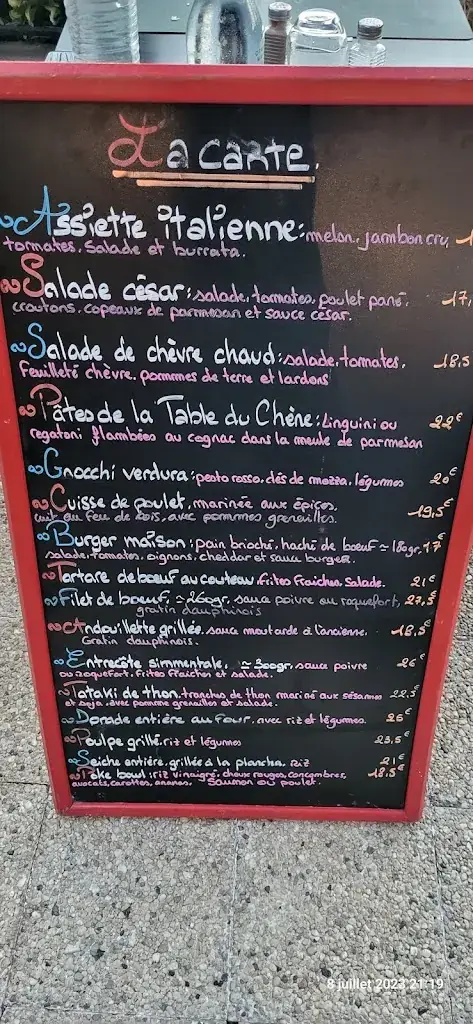 La carte.
Assiette italienne: melon, jambon cru,
tomates, Salade et burrata.
Salade césar: salade, tomates, poulet pané, 17,
croutons, copeaux de parmesan et sauce césar.
Salade de chèvre chaud: salade, tomates, 18,5
feuilleté chèvre, pommes de terre et lardons
Pâtes de la Table du Chêne: Linguini ou 22€
regatoni flambées au cognac dans la meule de parmesan
Gnocchi verdura: pesto rosso, dés de mozza, légumes 20€
Cuisse de poulet, marinée aux épices, 19,5€
cuit au feu de bois, avec pommes grenailles.
Burger maison: pain brioché, haché de boeuf ≃ 180gr. 17€
salade, tomates, oignons, cheddar et sauce burger.
Tartare de boeuf au couteau. frites fraiches, Salade. 21€
Filet de boeuf, ≃ 260gr, sauce poivre ou roquefort, 27,5€
gratin dauphinois
Andouillette grillée, sauce moutarde à l'ancienne. 18,5€
Gratin dauphinois.
Entrecôte simmentale, ≃ 300gr, sauce poivre 26€
ou roquefort, frites fraiches et salade.
Tataki de thon, tranches de thon mariné aux sésames 22,5€
et soja, avec pomme grenailles et salade.
Dorade entière au four, avec riz et légumes. 26€
Poulpe grillé, riz et légumes 23,5€
Seiche entière, grillée à la plancha, riz 21€
Poke bowl: riz vinaigré, choux rouges, concombres, 18,5€
avocats, carottes, ananas, Saumon ou poulet.
8 juillet 2023 21:19